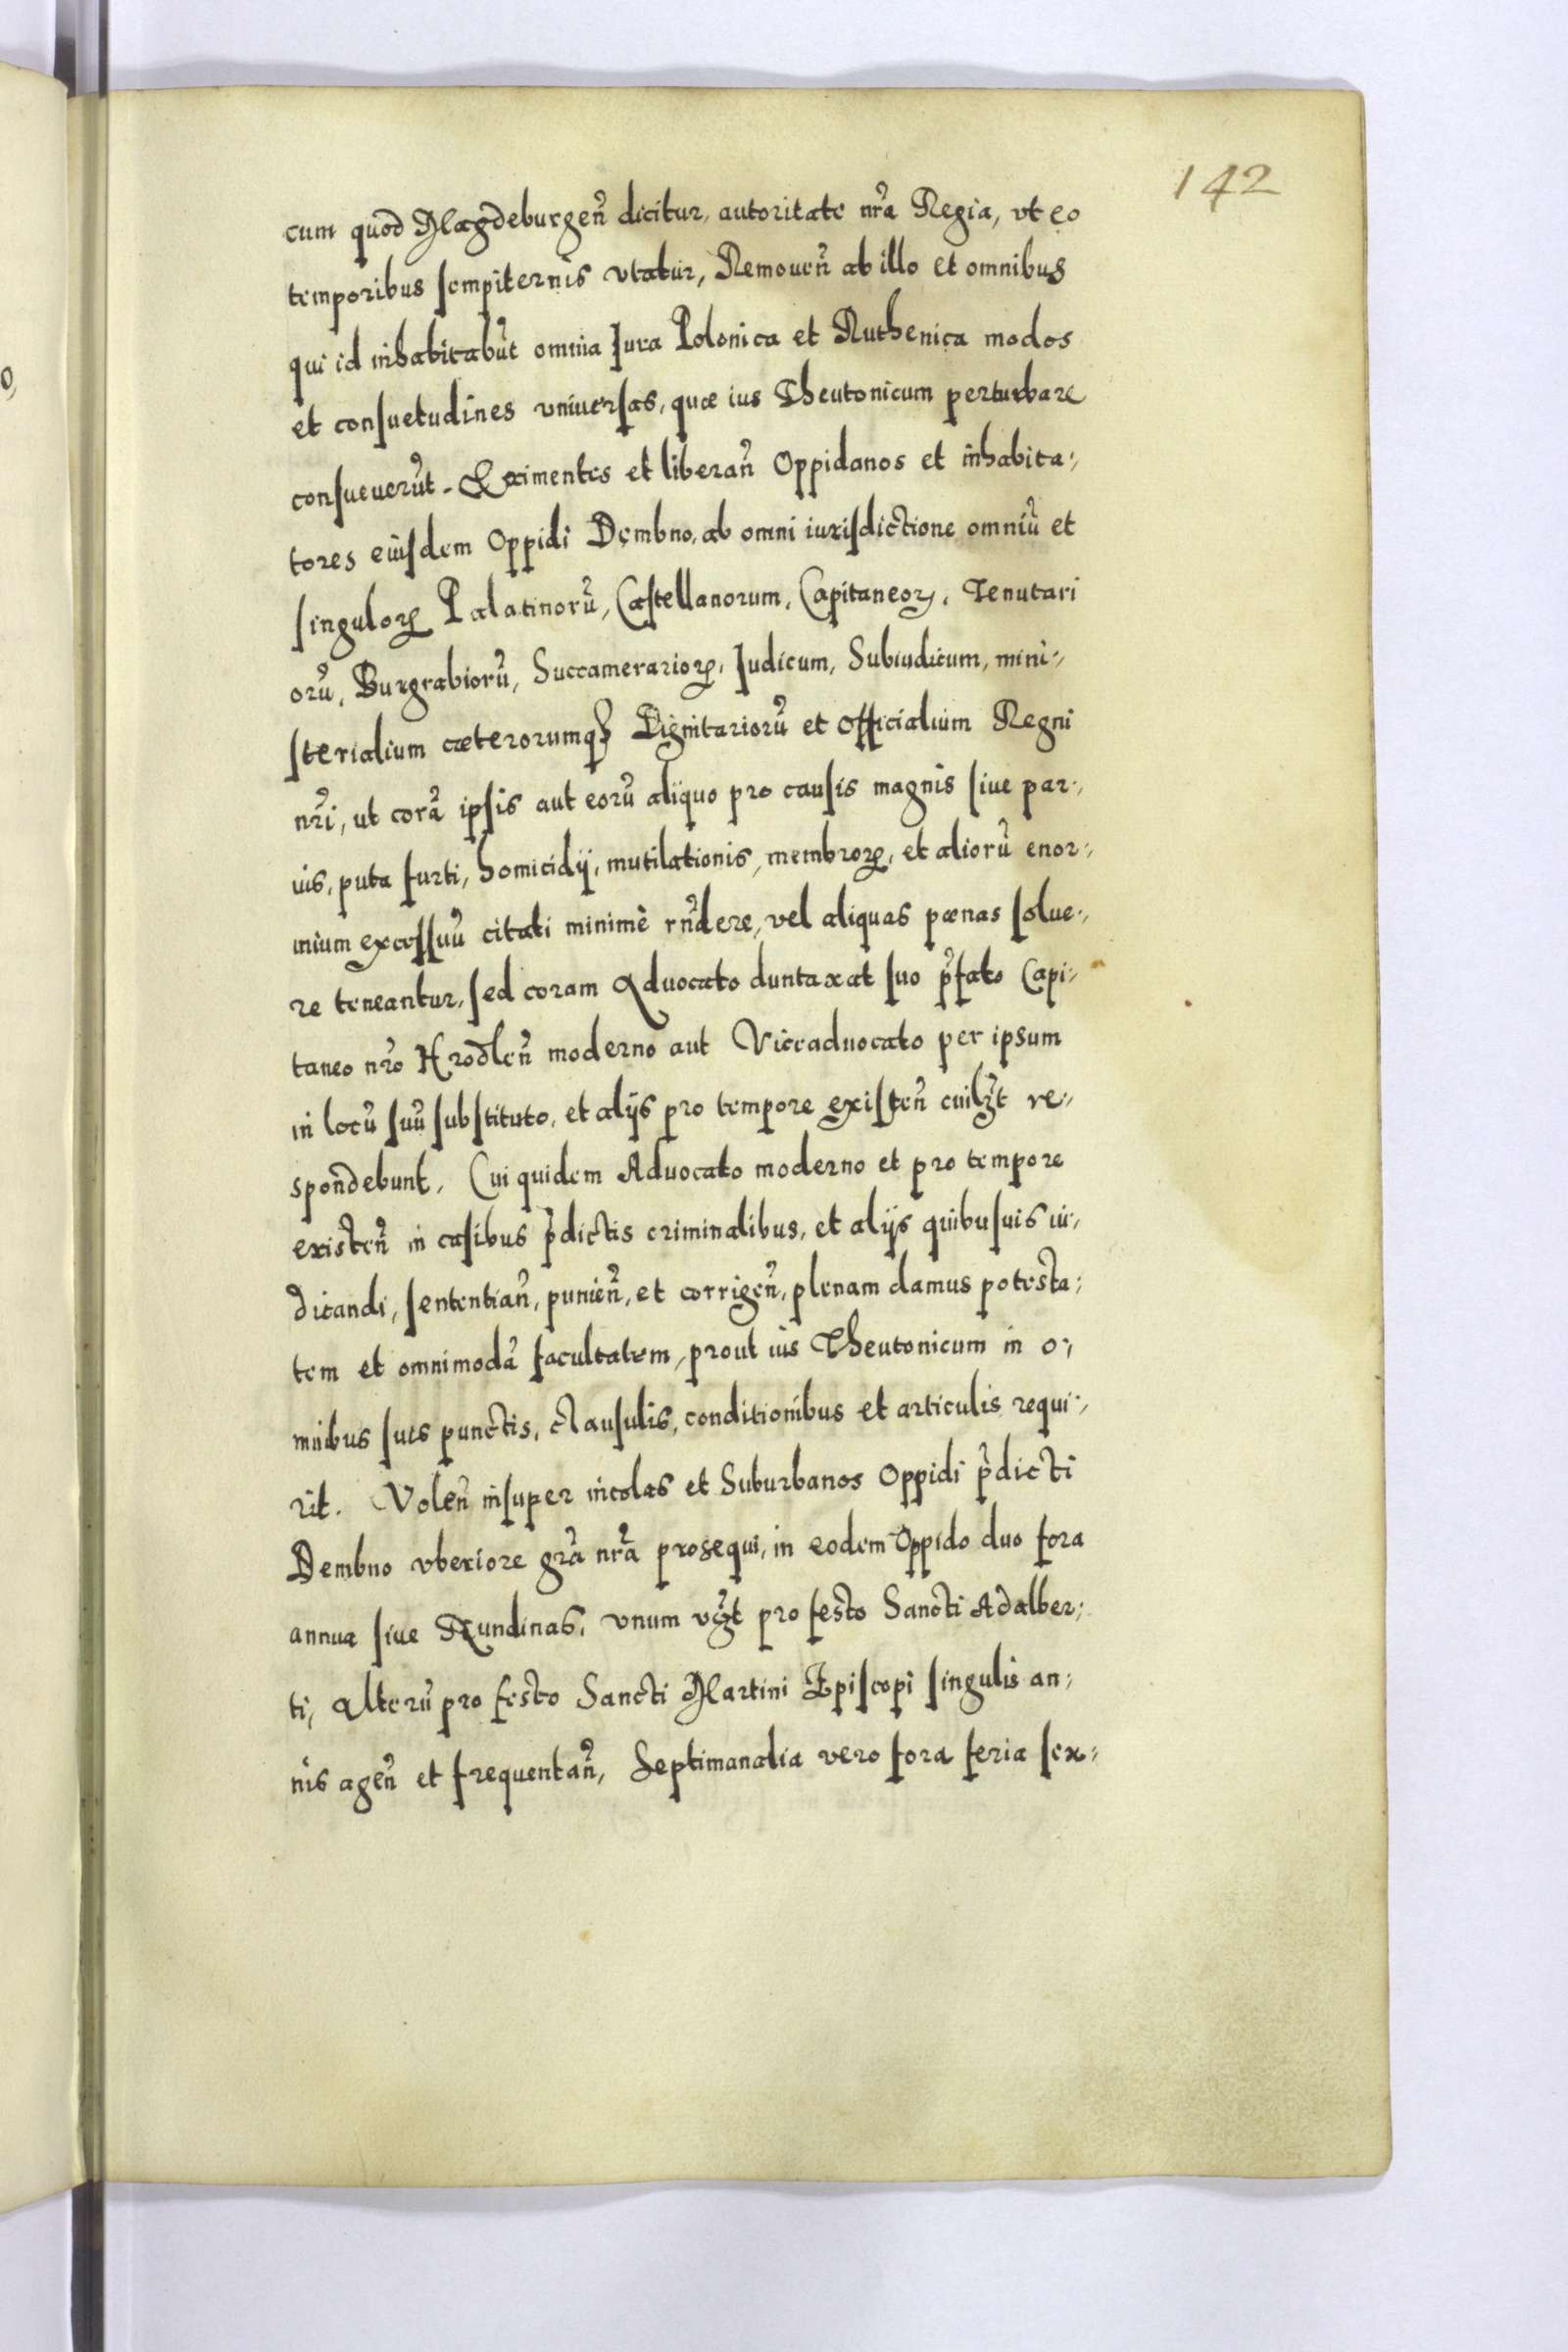 142
cum quod Magdeburgeñ dicitur, autoritate nr̃a Regia, vt eo
temporibus sempiternis vtatur, Remoueñ ab illo et omnibus
qui id inhabitabũt omnia Jura Polonica et Ruthenica modos
et consuetudines vniuersas, quæ ius Theutonicum perturbare
consueuerũt. Eximentes et liberañ Oppidanos et inhabita-
tores eiusdem Oppidi Dembno, ab omni iurisdictione omniũ et
singuloꝝ Palatinorũ, Castellanorum, Capitaneoꝝ, Tenutari
orũ, Burgrabiorũ, Succamerarioꝝ, Judicum, Subiudicum, mini-
sterialium cæterorumqꝫ Dignitariorũ et Officialium Regni
nr̃i, ut corã ipsis aut eorũ aliquo pro causis magnis siue par-
uis, puta furti, homicidij, mutilationis, membroꝝ, et aliorũ enor-
mium excessuũ citati minimè rñdere, vel aliquas pœnas solue-
re teneantur, sed coram Aduocato duntaxat suo p̃fato Capi-
taneo nr̃o Hrodleñ moderno aut Viceaduocato per ipsum
in locũ suũ substituto, et alijs pro tempore existeñ cuilꝫt re-
spondebunt. Cui quidem Aduocato moderno et pro tempore
existeñ in casibus p̃dictis criminalibus, et alijs quibusuis iu-
dicandi, sententiañ, punieñ, et corrigeñ, plenam damus potesta-
tem et omnimodã facultatem, prout ius Theutonicum in o-
mnibus suis punctis, clausulis, conditionibus et articulis requi-
rit. Voleñ insuper incolas et Suburbanos Oppidi p̃dicti
Dembno vberiore gr̃a nr̃a prosequi, in eodem Oppido duo fora
annua siue Nundinas, vnum vꝫt pro festo Sancti Adalber-
ti, Alterũ pro festo Sancti Martini Episcopi singulis an-
nis ageñ et frequentañ, Septimanalia vero fora feria sex-